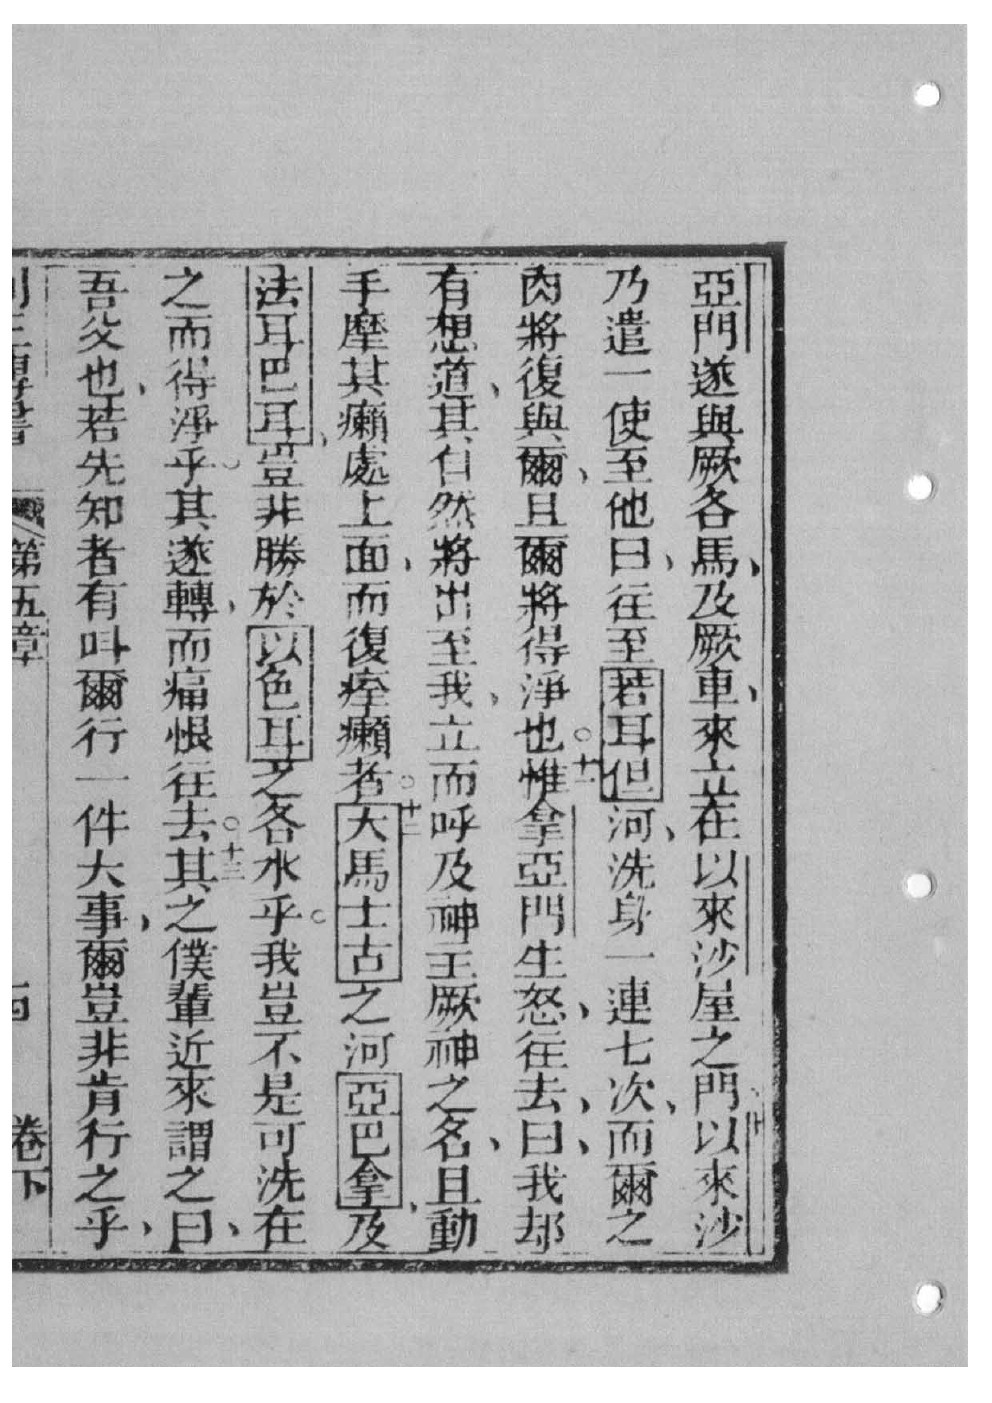 亞門遂與厥各馬、及厥車、來立在以來沙屋之門十以來沙
乃遣一使至他曰、往至若耳但河、洗身一連七次、而爾之
肉將復與爾、且爾將得淨也。十一惟拿亞門生怒、往去、曰、我却
有想道、其自然將出至我、立而呼及神主厥神之名、且動
手摩其癩處上面、而復痊癩者。十二大馬士古之河亞巴拿、及
法耳巴耳、豈非勝於以色耳之各水乎。我豈不是可洗在
之而得淨乎。其遂轉、而痛恨往去。十三其之僕輩近來謂之曰、
吾父也、若先知者有呌爾行一件大事、爾豈非肯行之乎、
列王傳書 第五章 卷下